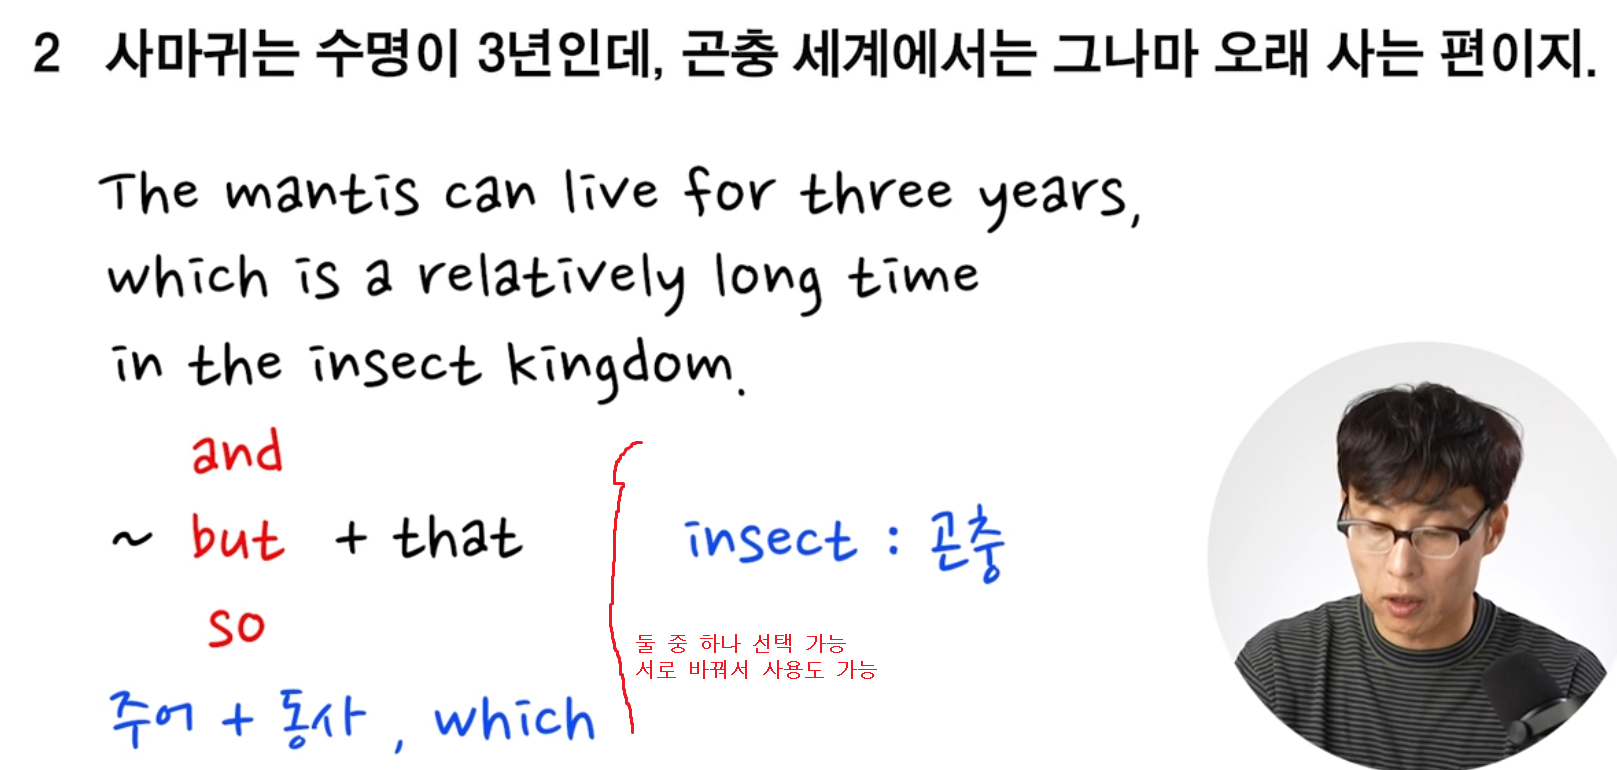 2 사마귀는 수명이 3년인데, 곤충 세계에서는 그나마 오래 사는 편이지.
The mantis can live for three years,
which is a relatively long time
in the insect kingdom.
and
~ but + that
so
주어 + 동사, which
insect : 곤충
둘 중 하나 선택 가능
서로 바꿔서 사용도 가능